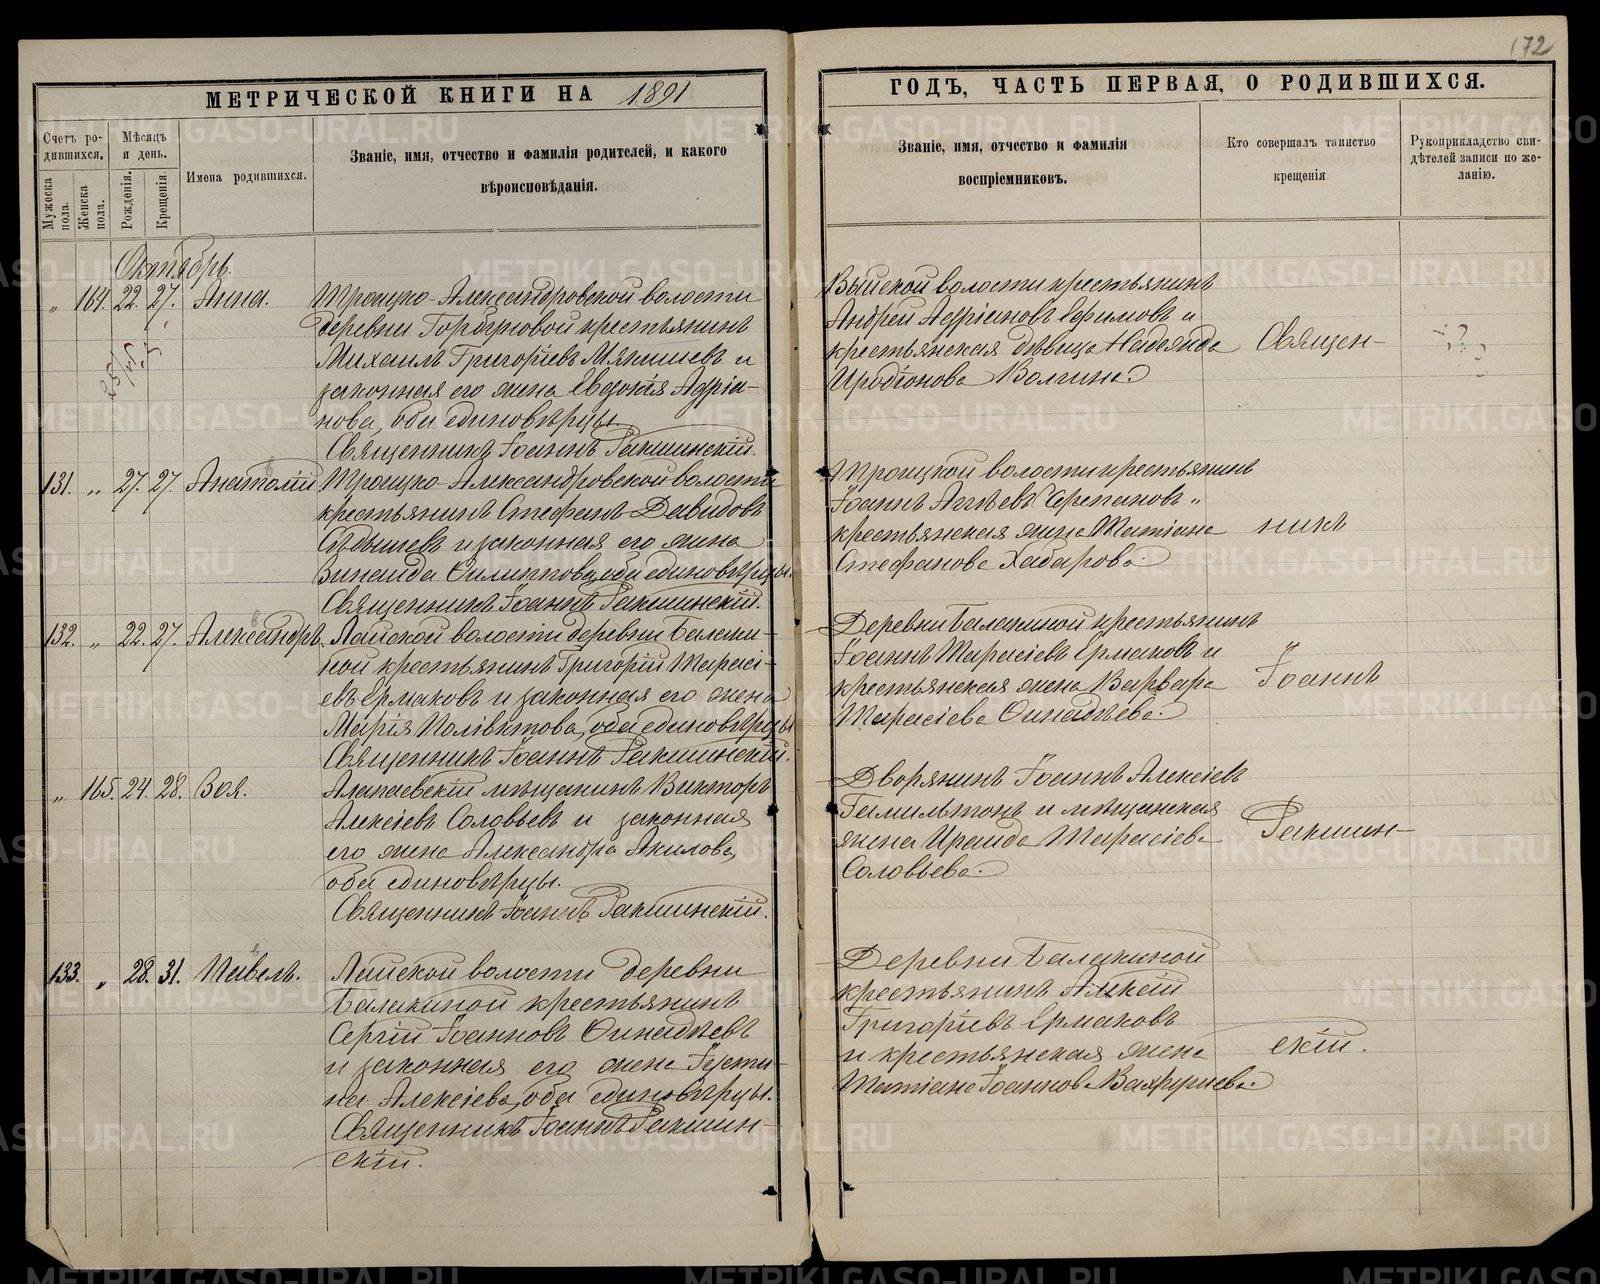 172
МЕТРИЧЕСКОЙ КНИГИ НА 1891
ГОДЪ, ЧАСТЬ ПЕРВАЯ, О РОДИВШИХСЯ.
Счетъ ро-
дившихся.
Мужеска пола.
Женска пола.
Мѣсяцъ
и день.
Рожденія.
Крещенія.
Имена родившихся.
Званіе, имя, отчество и фамилія родителей, и какого
вѣроисповѣданія.
Званіе, имя, отчество и фамилія
воспріемниковъ.
Кто совершалъ таинство
крещенія
Рукоприкладство сви-
дѣтелей записи по же-
ланію.
Октябрь.
„ 164. 22. 27. Анна.
Троицко-Александровской волости
деревни крестьянинъ
Михаилъ Григоріевъ и
законная его жена Евдокія Адріа-
нова, оба единовѣрцы.
Священникъ Іоаннъ
Выйской волости крестьянинъ
Андрей Адріановъ Ефимовъ и
крестьянская дѣвица Надежда
Иродіонова Волгина.
Священ-
131. „ 27. 27. Анатолій
Троицко-Александровской волости
крестьянинъ Стефанъ Давидовъ
и законная его жена
Зинаида Филиппова, оба единовѣрцы.
Священникъ Іоаннъ
Троицкой волости крестьянинъ
Іоаннъ
крестьянская жена Татіана
Стефанова Хабарова.
никъ
132. „ 22. 27. Александръ.
Лайской волости деревни Балаки-
ной крестьянинъ Григорій Тарасі-
евъ Ермаковъ и законная его жена
Марія Поліектова, оба единовѣрцы
Священникъ Іоаннъ
Деревни Балакиной крестьянинъ
Іоаннъ Тарасіевъ Ермаковъ и
крестьянская жена Варвара
Тарасіева Финадѣева.
Іоаннъ
„ 165. 24. 28. Зоя.
Алапаевскій мѣщанинъ Викторъ
Алексіевъ Соловьевъ и законная
его жена Александра Акилова,
оба единовѣрцы.
Священникъ Іоаннъ
Дворянинъ Іоаннъ Алексіевъ
Гамильтонъ и мѣщанская
жена Ираида Тарасіева
Соловьева.
133. „ 28. 31. Павелъ.
Лайской волости деревни
Балакиной крестьянинъ
Сергій Іоанновъ Финадѣевъ
и законная его жена Іусти-
на Алексіева, оба единовѣрцы.
Священникъ Іоаннъ
скій.
Деревни Балакиной
крестьянинъ Алексій
Григоріевъ Ермаковъ
и крестьянская жена
Татіана Іоаннова
скій.
METRIKI.GASO-URAL.RU